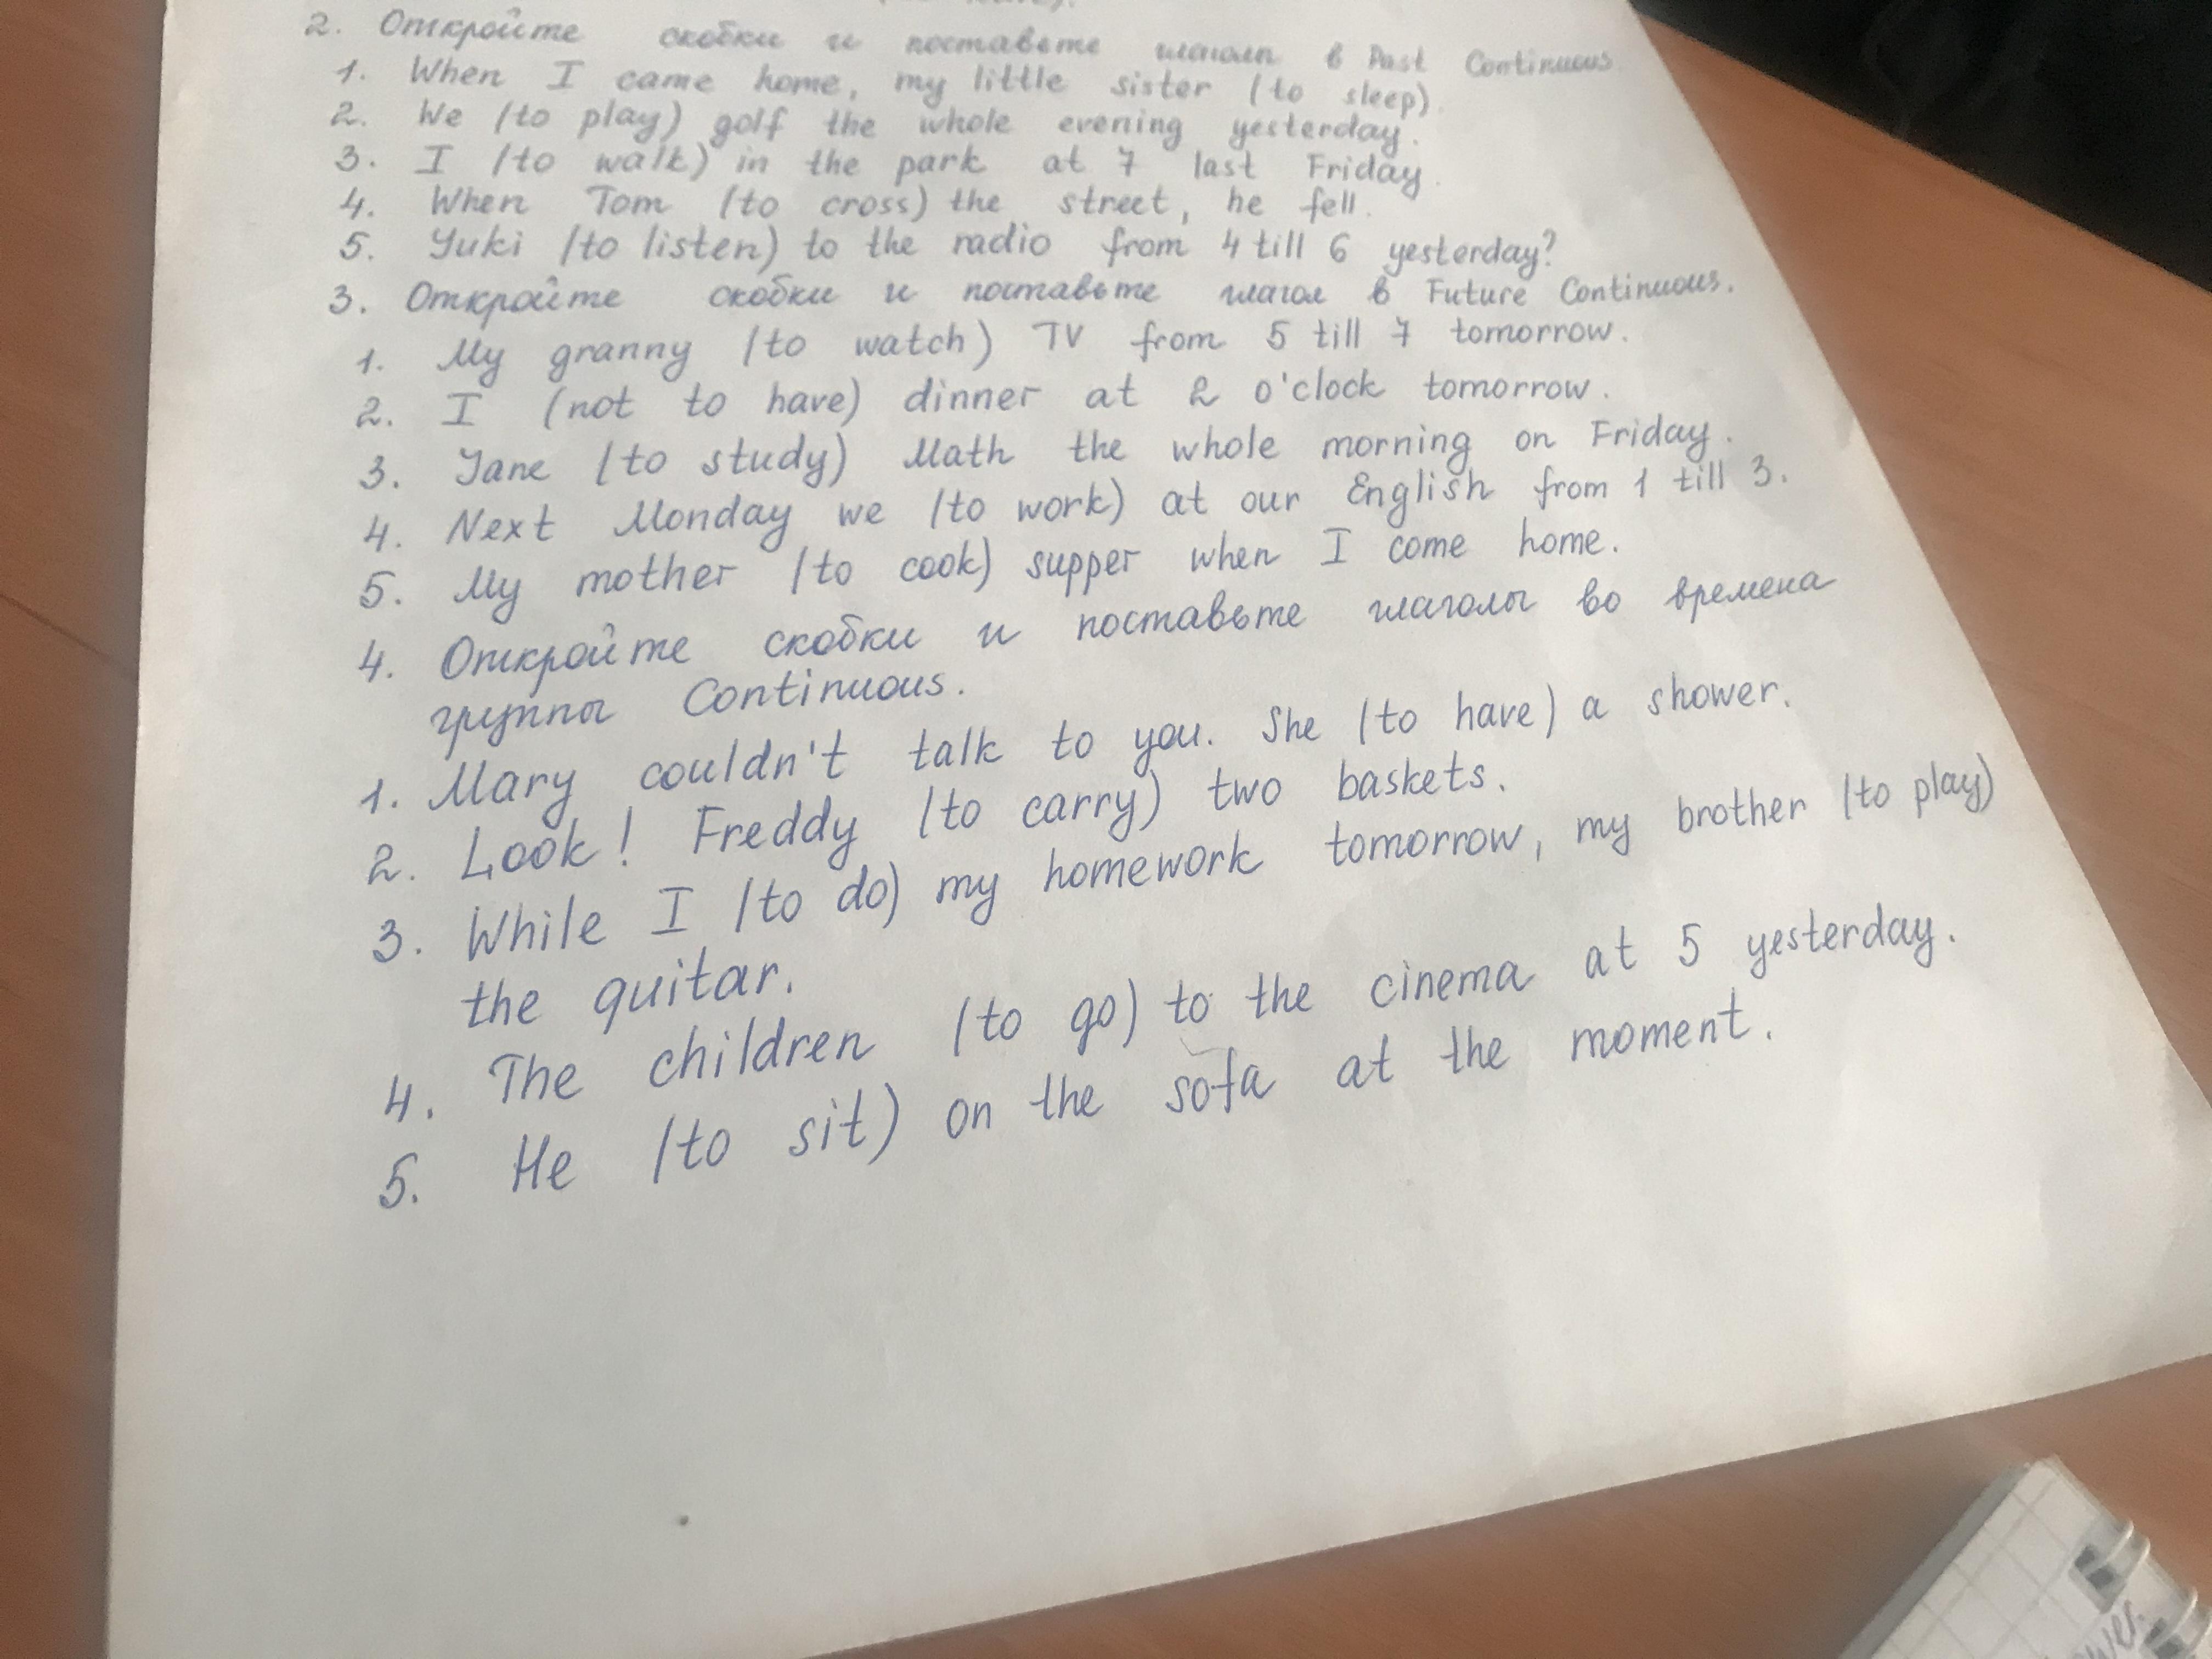 2. Откройте скобки и поставьте глагол в Past Continuous.
1. When I came home, my little sister (to sleep).
2. We (to play) golf the whole evening yesterday.
3. I (to walk) in the park at 7 last Friday.
4. When Tom (to cross) the street, he fell.
5. Yuki (to listen) to the radio from 4 till 6 yesterday?
3. Откройте скобки и поставьте глагол в Future Continuous.
1. My granny (to watch) TV from 5 till 7 tomorrow.
2. I (not to have) dinner at 2 o'clock tomorrow.
3. Jane (to study) Math the whole morning on Friday.
4. Next Monday we (to work) at our English from 1 till 3.
5. My mother (to cook) supper when I come home.
4. Откройте скобки и поставьте глаголы во времена
группы Continuous.
1. Mary couldn't talk to you. She (to have) a shower.
2. Look! Freddy (to carry) two baskets.
3. While I (to do) my homework tomorrow, my brother (to play)
the guitar.
4. The children (to go) to the cinema at 5 yesterday.
5. He (to sit) on the sofa at the moment.